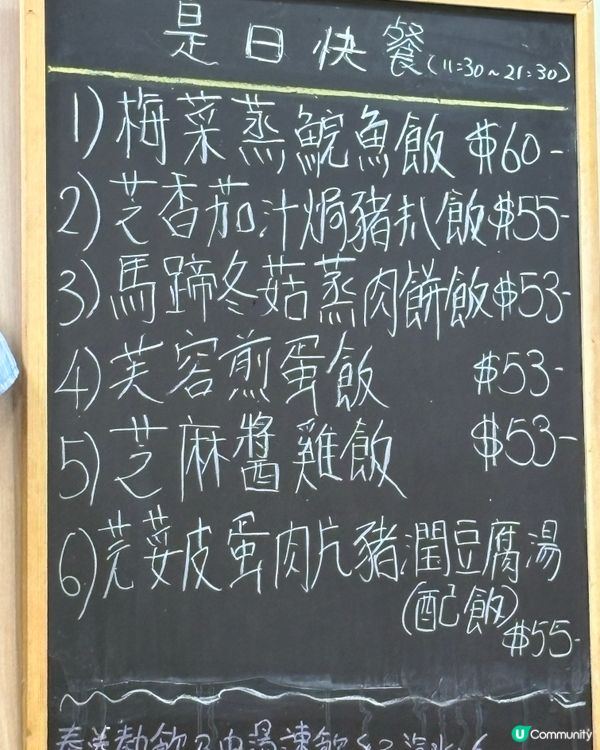 是日快餐(11:30~21:30)
1)梅菜蒸鯇魚飯 $60-
2)芝香茄汁焗豬扒飯$55-
3)馬蹄冬菇蒸肉餅飯$53-
4)芙容煎蛋飯 $53-
5)芝麻醬雞飯 $53-
6)芫荽皮蛋肉片豬潤豆腐湯
(配飯)
$55-
U Community